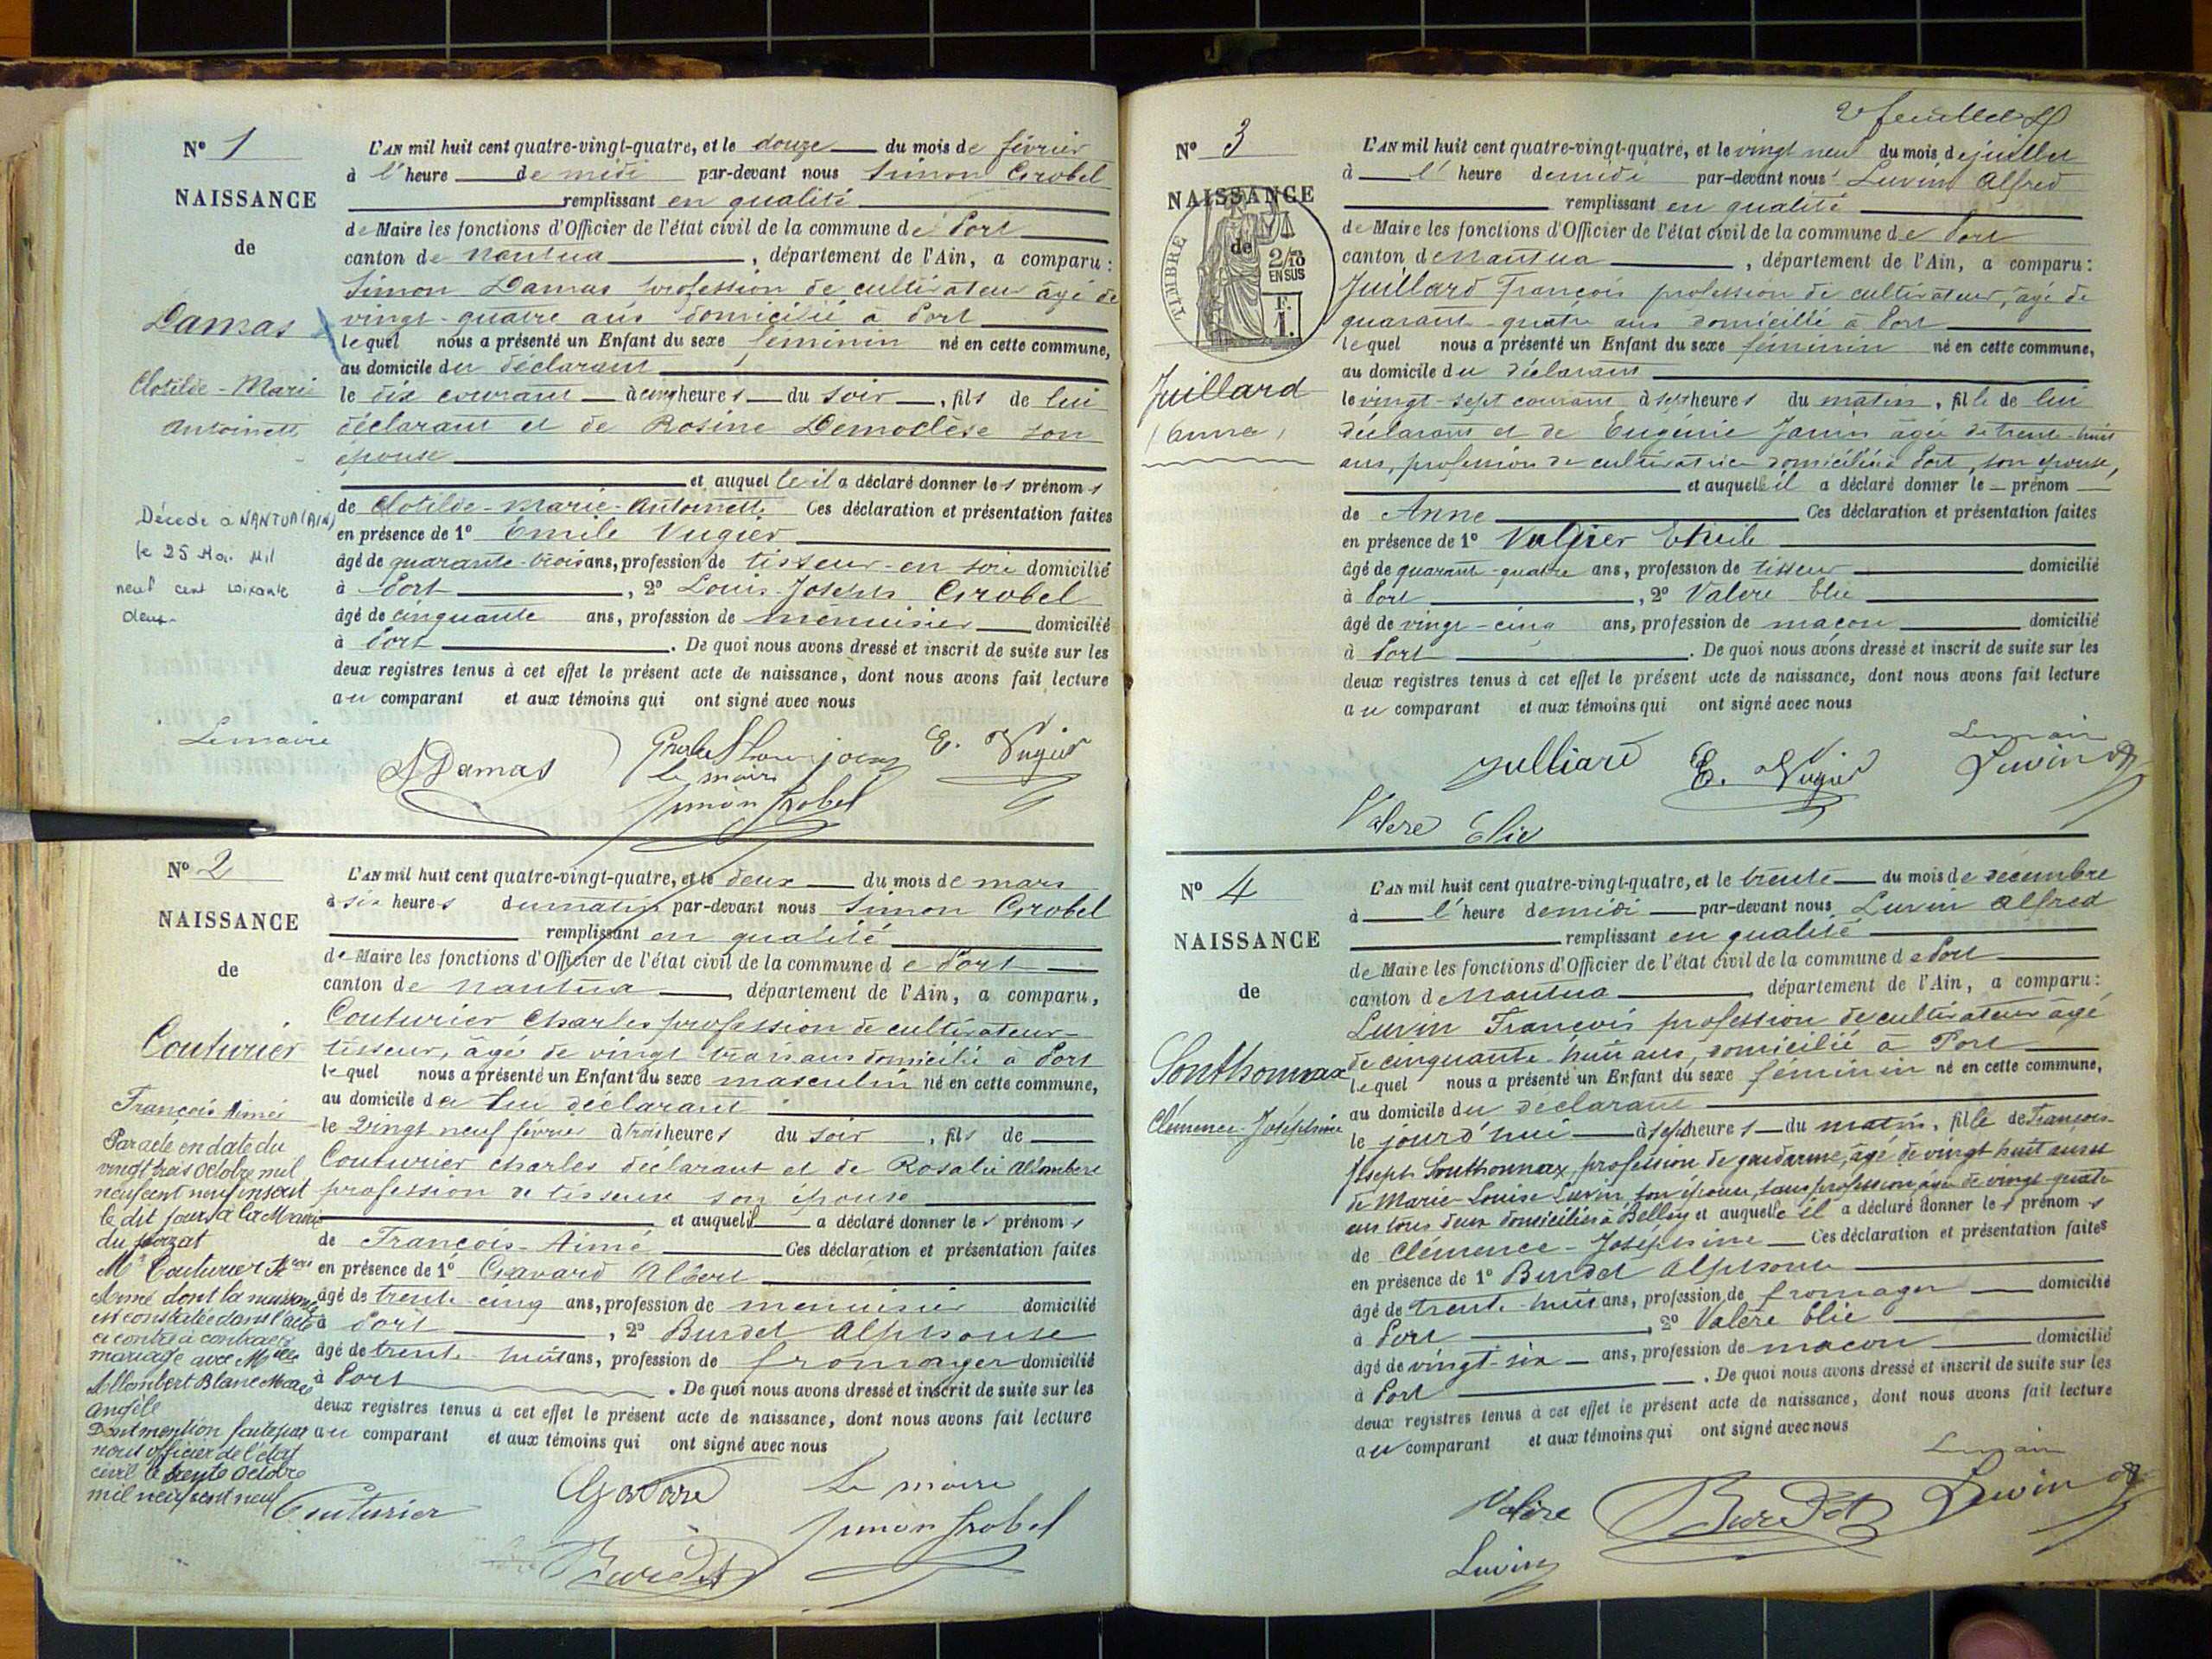 Nº 1
NAISSANCE
de
Damas
Clotilde-Marie
Antoinette
Décédé à NANTUA (AIN)
le 25 Mai Mil
neuf cent soixante
deux
Le maire
L'AN mil huit cent quatre-vingt-quatre, et le douze du mois de février
à l'heure de midi par-devant nous Simon Grobel
remplissant en qualité
de Maire les fonctions d'Officier de l'état civil de la commune de Port
canton de Nantua, département de l'Ain, a comparu :
Simon Damas profession de cultivateur âgé de
vingt-quatre ans domicilié à Port
lequel nous a présenté un Enfant du sexe féminin né en cette commune,
au domicile du déclarant
le dix courant à cinq heures du soir, fils de lui
déclarant et de Rosine Démoclèse son
épouse
et auquel le il a déclaré donner les prénoms
de Clotilde-Marie-Antoinette Ces déclaration et présentation faites
en présence de 1º Émile Vugier
âgé de quarante-trois ans, profession de tisseur-en soie domicilié
à Port, 2º Louis-Joseph Grobel
âgé de cinquante ans, profession de menuisier domicilié
à Port. De quoi nous avons dressé et inscrit de suite sur les
deux registres tenus à cet effet le présent acte de naissance, dont nous avons fait lecture
au comparant et aux témoins qui ont signé avec nous
S Damas
E. Vugier
le maire
Simon Grobel
Nº 2
NAISSANCE
de
Couturier
François Aimé
Par acte en date du
vingt trois Octobre mil
neuf cent neuf inscrit
le dit jour à la Mairie
du
Mr Couturier Fçois
Aimé dont la naissance
est constatée dans l'acte
ci contre a contracté
mariage avec Melle
Allombert Blanc Marie
Angèle
Dont mention faite par
nous officier de l'état
civil le trente Octobre
mil neuf cent neuf
L'AN mil huit cent quatre-vingt-quatre, et le deux du mois de mars
à six heures du matin par-devant nous Simon Grobel
remplissant en qualité
de Maire les fonctions d'Officier de l'état civil de la commune de Port
canton de Nantua, département de l'Ain, a comparu,
Couturier Charles profession de cultivateur-
tisseur, âgé de vingt-trois ans domicilié à Port
lequel nous a présenté un Enfant du sexe masculin né en cette commune,
au domicile de lui déclarant
le Vingt neuf février à trois heures du soir, fils de
Couturier Charles déclarant et de Rosalie Allombert
profession de tisseuse son épouse
et auquel il a déclaré donner les prénoms
de François-Aimé Ces déclaration et présentation faites
en présence de 1º Gavard Albert
âgé de trente cinq ans, profession de menuisier domicilié
à Port, 2º Burdet Alphonse
âgé de trente-huit ans, profession de fromager domicilié
à Port. De quoi nous avons dressé et inscrit de suite sur les
deux registres tenus à cet effet le présent acte de naissance, dont nous avons fait lecture
au comparant et aux témoins qui ont signé avec nous
Couturier
Gavard
Le maire
Simon Grobel
Burdet
2e feuillet
Nº 3
NAISSANCE
de
TIMBRE
2/10
EN SUS
F.
1.
Juillard
(Anne)
L'AN mil huit cent quatre-vingt-quatre, et le vingt neuf du mois de juillet
à l'heure de midi par-devant nous Luvin Alfred
remplissant en qualité
de Maire les fonctions d'Officier de l'état civil de la commune de Port
canton de Nantua, département de l'Ain, a comparu :
Juillard François profession de cultivateur, âgé de
quarante-quatre ans domicilié à Port
lequel nous a présenté un Enfant du sexe féminin né en cette commune,
au domicile du déclarant
le vingt-sept courant à sept heures du matin, fille de lui
déclarant et de Eugénie Janin âgée de trente-huit
ans, profession de cultivatrice domiciliée à Port, son épouse,
et auquel le il a déclaré donner le prénom
de Anne Ces déclaration et présentation faites
en présence de 1º Vugier Emile
âgé de quarante-quatre ans, profession de tisseur domicilié
à Port, 2º Valère Elie
âgé de vingt-cinq ans, profession de maçon domicilié
à Port. De quoi nous avons dressé et inscrit de suite sur les
deux registres tenus à cet effet le présent acte de naissance, dont nous avons fait lecture
au comparant et aux témoins qui ont signé avec nous
Julliard
E. Vugier
Le maire
Luvin
Valere Elie
Nº 4
NAISSANCE
de
Sonthonnax
Clémence-Joséphine
L'AN mil huit cent quatre-vingt-quatre, et le trente du mois de décembre
à l'heure de midi par-devant nous Luvin Alfred
remplissant en qualité
de Maire les fonctions d'Officier de l'état civil de la commune de Port
canton de Nantua, département de l'Ain, a comparu :
Luvin François profession de cultivateur âgé
de cinquante-huit ans, domicilié à Port
lequel nous a présenté un Enfant du sexe féminin né en cette commune,
au domicile du déclarant
le jourd'hui à sept heures du matin, fille de François-
Joseph Sonthonnax, profession de gendarme, âgé de vingt huit ans et
de Marie-Louise Luvin, son épouse, sans profession, âgée de vingt-quatre
ans tous deux domiciliés à Belley et auquel le il a déclaré donner les prénoms
de Clémence-Joséphine Ces déclaration et présentation faites
en présence de 1º Burdet Alphonse
âgé de trente-huit ans, profession de fromager domicilié
à Port, 2º Valère Elie
âgé de vingt-six ans, profession de maçon domicilié
à Port. De quoi nous avons dressé et inscrit de suite sur les
deux registres tenus à cet effet le présent acte de naissance, dont nous avons fait lecture
au comparant et aux témoins qui ont signé avec nous
Le maire
Valère
Burdet
Luvin
Luvin